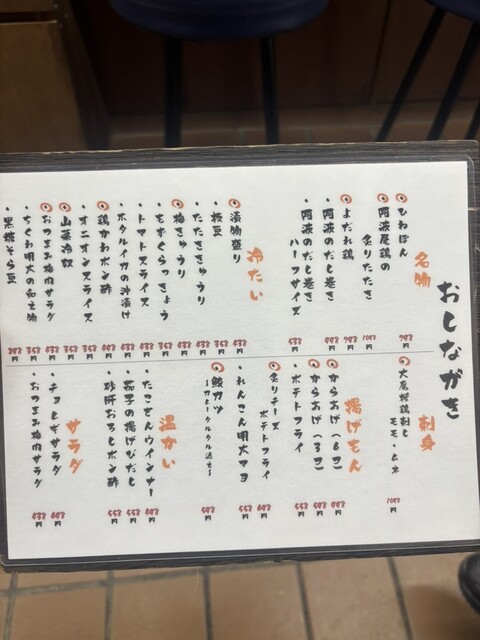 おしながき
名物
ひねぽん 793円
阿波尾鶏の
炙りたたき 1093円
よだれ鶏 793円
阿波のだし巻き 993円
阿波のだし巻き
ハーフサイズ 583円
冷たい
漬物盛り 438円
枝豆 353円
たたききゅうり 353円
梅きゅうり 383円
もずくらっきょう
トマトスライス
ホタルイカの沖漬け
鶏かわポン酢
オニオンスライス 353円
山菜冷奴 353円
おつまみ梅肉サラダ 438円
ちくわ明太の和え物 353円
黒糖そら豆 393円
刺身
大尾鶏刺し
モモ・ムネ 1093円
揚げもん
からあげ(6コ) 993円
からあげ(3コ) 593円
ポテトフライ 553円
炙りチーズ
ポテトフライ 693円
れんこん明太マヨ 553円
鯵カツ
〜カレータルタル添え〜 593円
温かい
たこさんウインナー 493円
茄子の揚げびたし 553円
砂肝おろしポン酢 553円
サラダ
チョレギサラダ 693円
おつまみ梅肉サラダ 438円